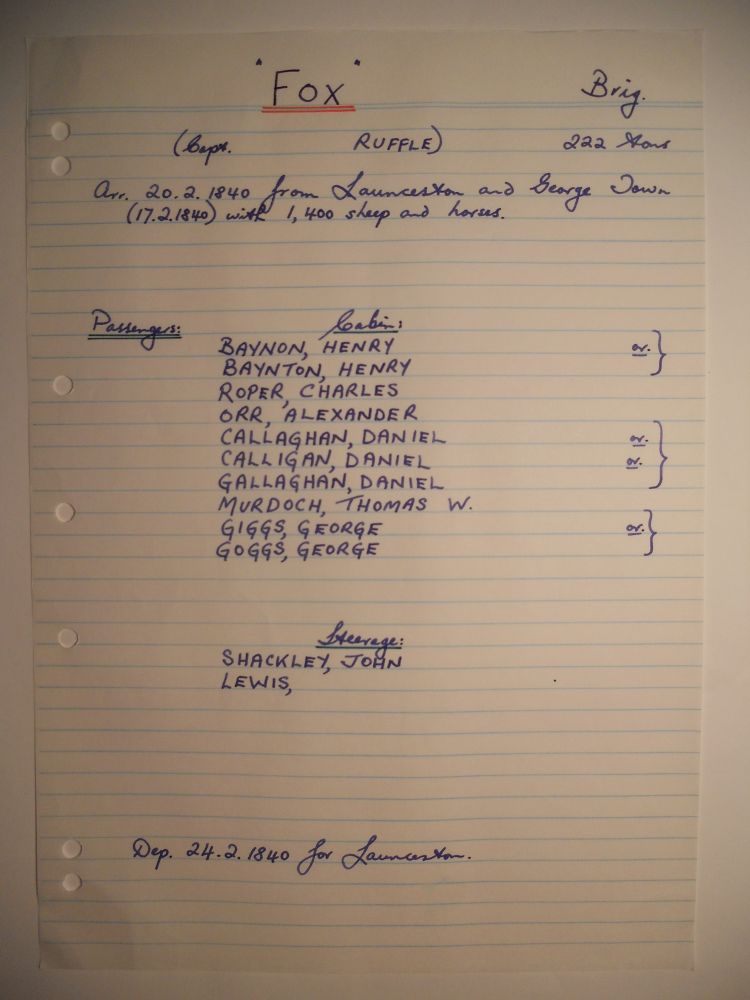 "Fox" Brig.
(Capt. RUFFLE) 222 Tons
Arr. 20.2.1840 from Launceston and George Town
(17.2.1840) with 1,400 sheep and horses.
Passengers: Cabin:
BAYNON, HENRY or. }
BAYNTON, HENRY
ROPER, CHARLES
ORR, ALEXANDER
CALLAGHAN, DANIEL or. }
CALLIGAN, DANIEL or.
GALLAGHAN, DANIEL
MURDOCH, THOMAS W.
GIGGS, GEORGE or. }
GOGGS, GEORGE
Steerage:
SHACKLEY, JOHN
LEWIS,
Dep. 24.2.1840 for Launceston.